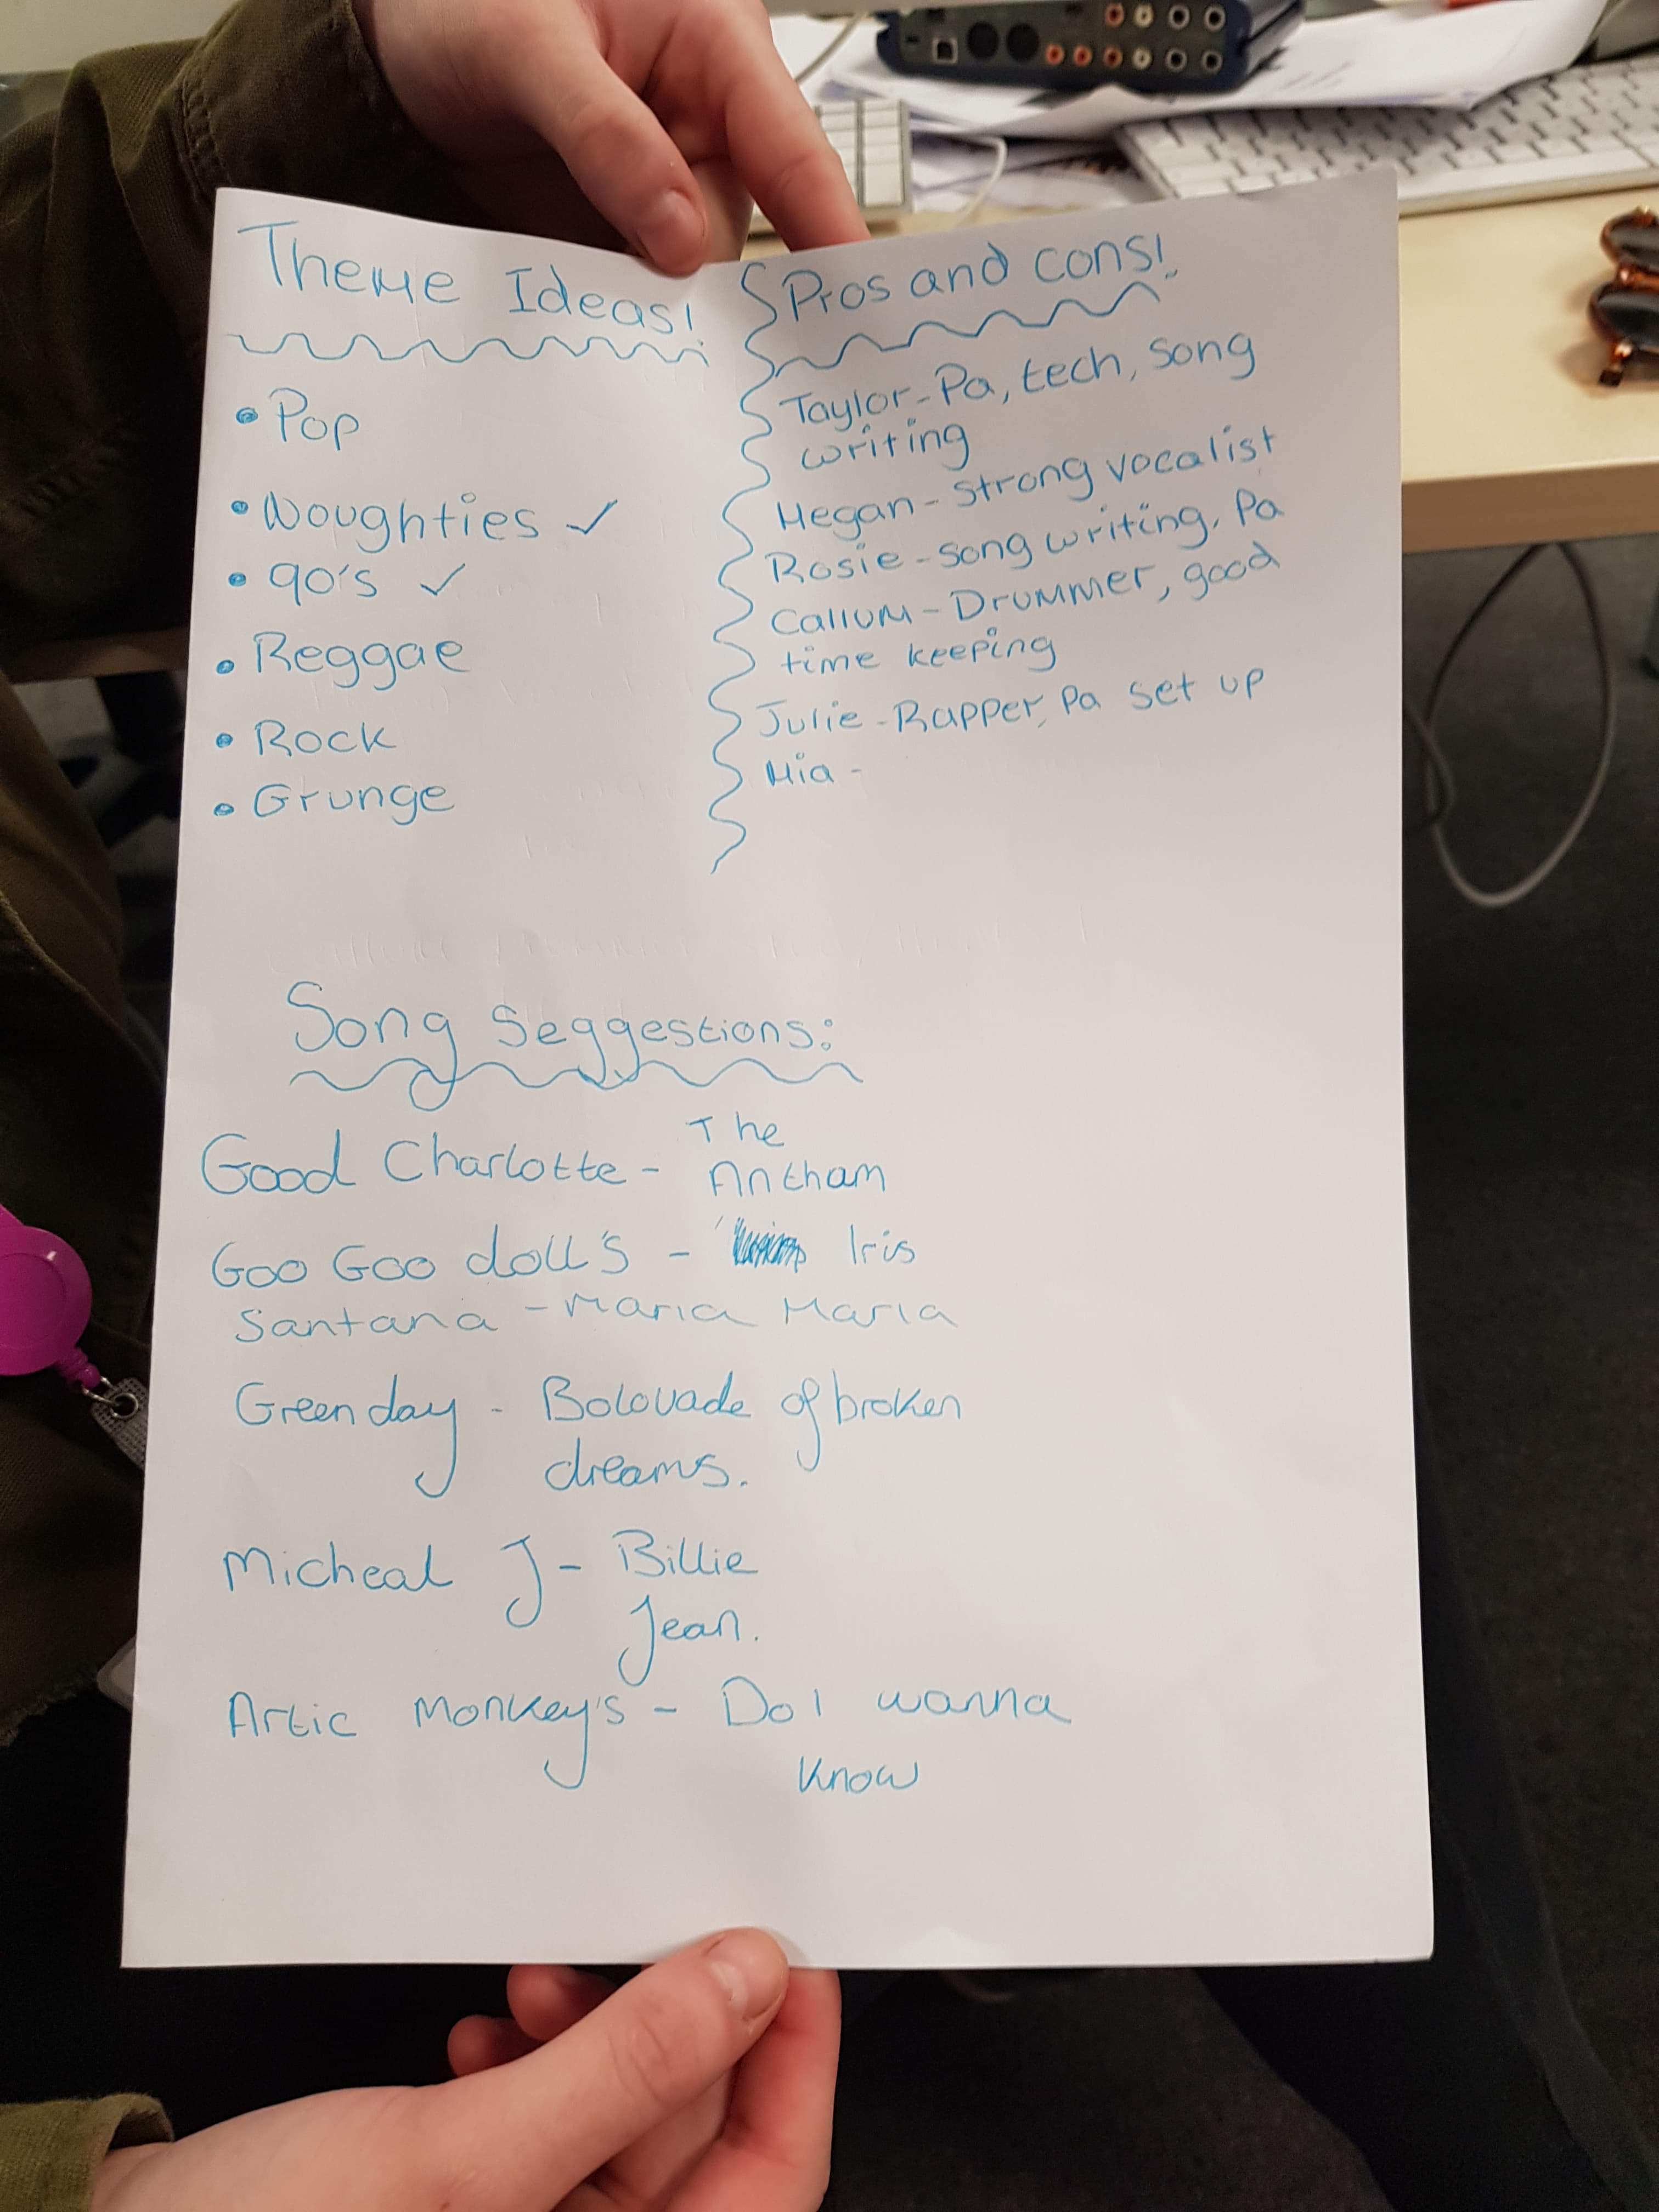 Theme Ideas!
• Pop
• Noughties ✓
• 90's ✓
• Reggae
• Rock
• Grunge
Pros and cons!
Taylor - Pa, tech, song
writing
Megan - strong vocalist
Rosie - song writing, Pa
Callum - Drummer, good
time keeping
Julie - Rapper, Pa set up
Mia -
Song Seggestions:
Good Charlotte - The
Antham
Goo Goo doll's - Iris
Santana - Maria Maria
Green day - Bolovade of broken
dreams.
Micheal J - Billie
Jean.
Artic Monkey's - Do I wanna
Know